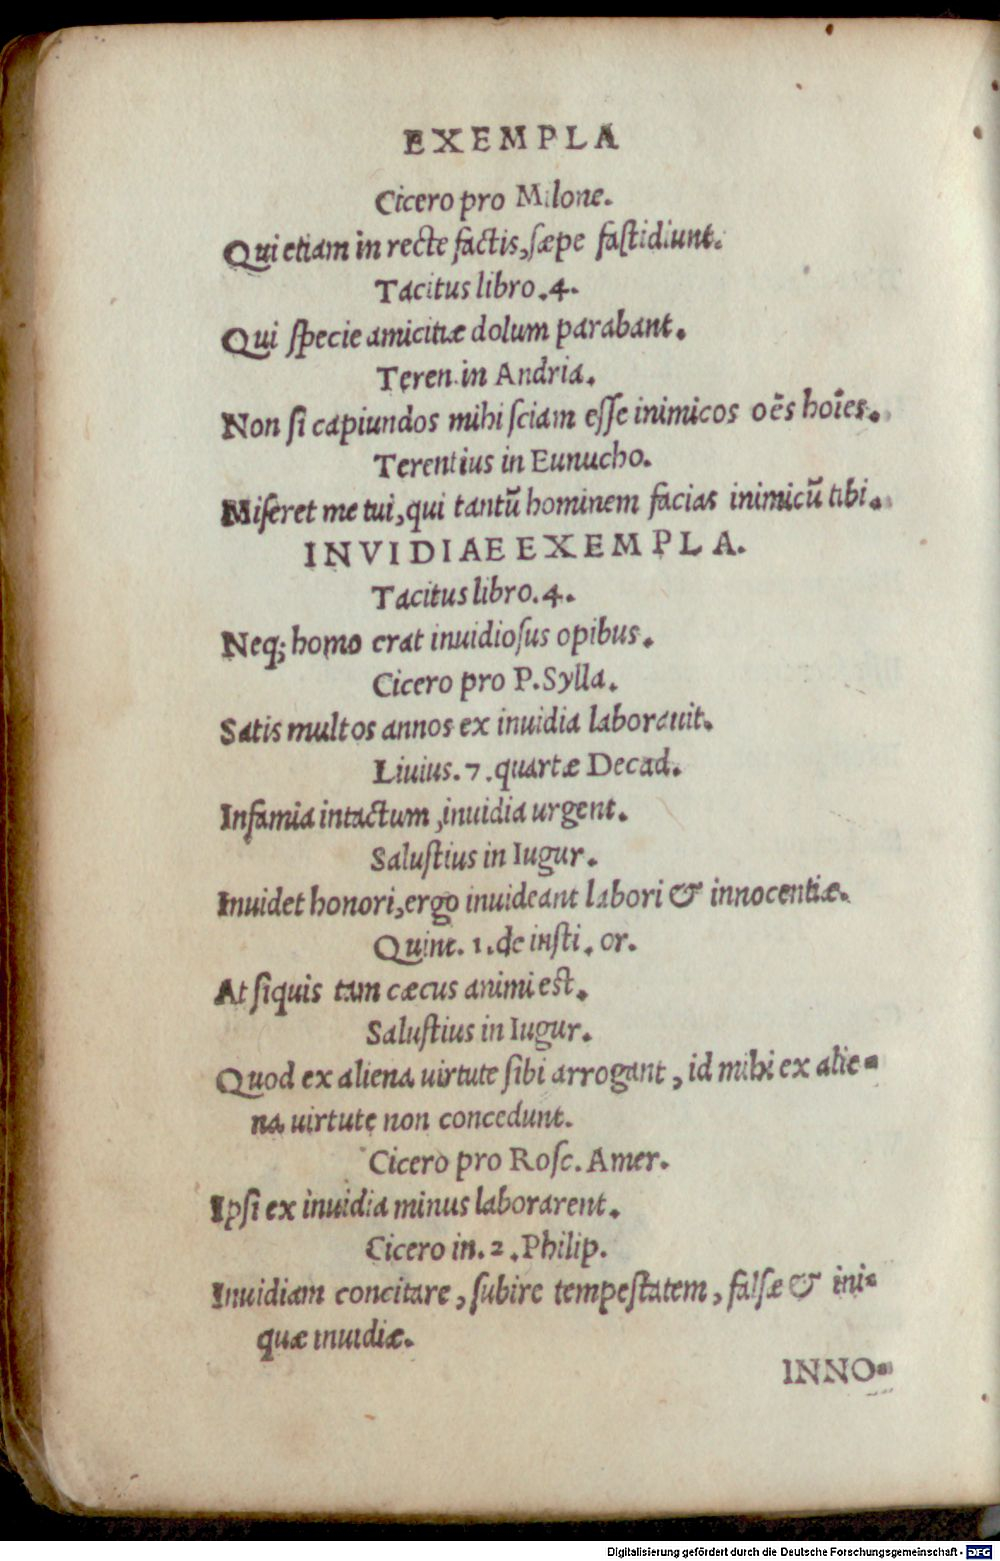 EXEMPLA
Cicero pro Milone.
Qui etiam in recte factis, sæpe fastidiunt.
Tacitus libro .4.
Qui specie amicitiæ dolum parabant.
Teren. in Andria.
Non si capiundos mihi sciam esse inimicos oēs hoīes.
Terentius in Eunucho.
Miseret me tui, qui tantū hominem facias inimicū tibi.
INVIDIAE EXEMPLA.
Tacitus libro .4.
Neq; homo erat inuidiosus opibus.
Cicero pro P. Sylla.
Satis multos annos ex inuidia laborauit.
Liuius .7. quartæ Decad.
Infamia intactum, inuidia urgent.
Salustius in Iugur.
Inuidet honori, ergo inuideant labori & innocentiæ.
Quint. 1. de insti. or.
At siquis tam cæcus animi est.
Salustius in Iugur.
Quod ex aliena uirtute sibi arrogant, id mihi ex alie-
na uirtute non concedunt.
Cicero pro Rosc. Amer.
Ipsi ex inuidia minus laborarent.
Cicero in .2. Philip.
Inuidiam concitare, subire tempestatem, falsæ & ini-
quæ inuidiæ.
INNO-
Digitalisierung gefördert durch die Deutsche Forschungsgemeinschaft - DFG